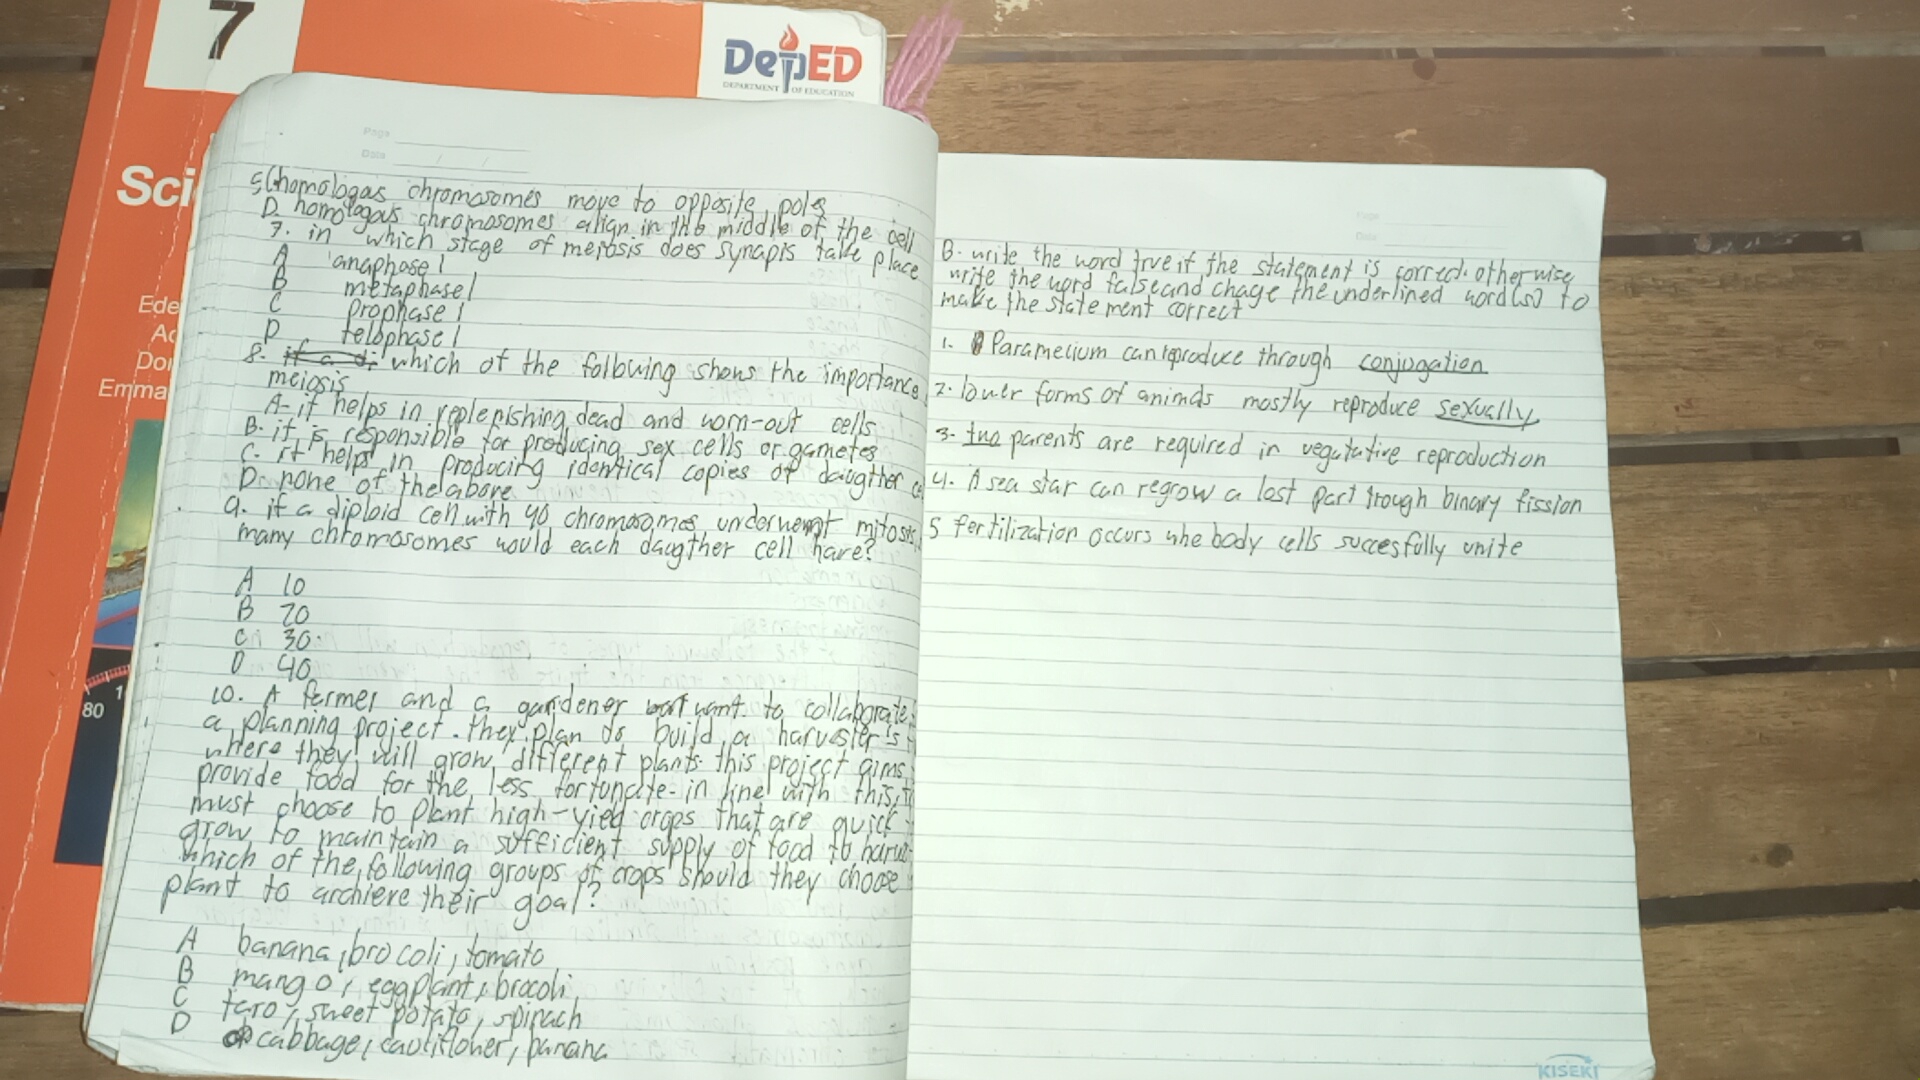 7
Sci
Ede
Ac
Do
Emma
80 1
DepED
DEPARTMENT OF EDUCATION
Page
Date
C homologas chromosomes move to opposite pols
D homologus chromosomes align in the middle of the cell
7. in which stage of meiosis does synapis take place
A anaphase I
B metaphase I
C prophase I
D telophase I
8. which of the following shows the importance
meiosis
A- it helps in repleplshing dead and worn-out cells
B. it is responsible for producing sex cells or gametes
C. it helps in producing identical copies of daugther
D. none of the above
9. if a diploid cell with 40 chromosomes underwent mitosis,
many chromosomes would each daugther cell have?
A 10
B 20
C 30
D 40
10. A farmer and a gardener want to collaborate
a planning project. they plan to build a harvester's
where they will grow different plants this project aims
provide food for the less fortunate. in line with this,
must choose to plant high-yied crops that are quick
grow to maintain a sufficient supply of food to harve
which of the following groups of crops should they choose
plant to archieve their goal?
A banana, brocoli, tomato
B mango, eggplant, brocoli
C taro, sweet potato, spinach
D cabbage, cauliflower, banana
Page
Date
B. write the word true if the statement is correct. otherwise,
write the word false and chage the underlined word(s) to
make the statement correct
1. Paramelium can reproduce through conjugation
2. lower forms of animals mostly reproduce sexually
3. two parents are required in vegutative reproduction
4. A sea star can regrow a lost part trough binary fission
5 fertilization occurs whe body cells succesfully unite
KISEKI